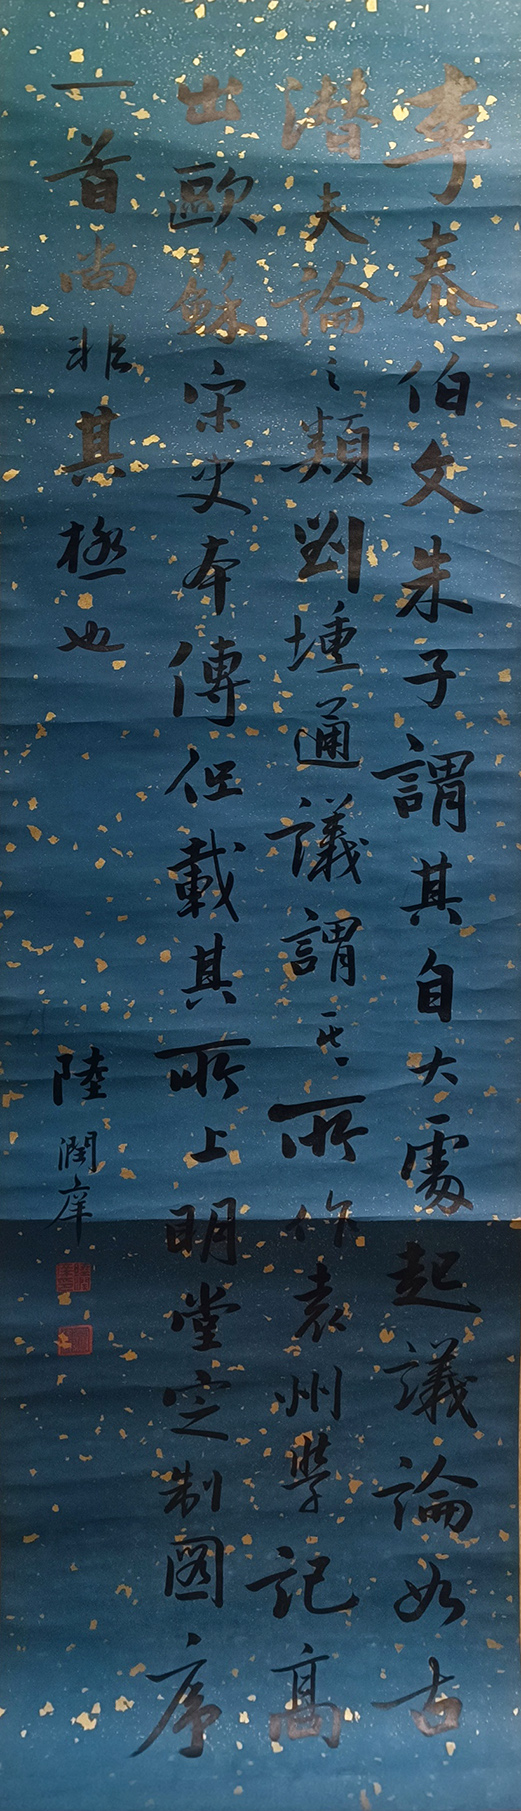 李泰伯文朱子謂其自大處起議論如古
潜夫論之類劉壎通議謂其所作袁州學記高
出歐蘇宋史本傳但載其所上明堂定制圖序
一首尚非其極也
陸潤庠